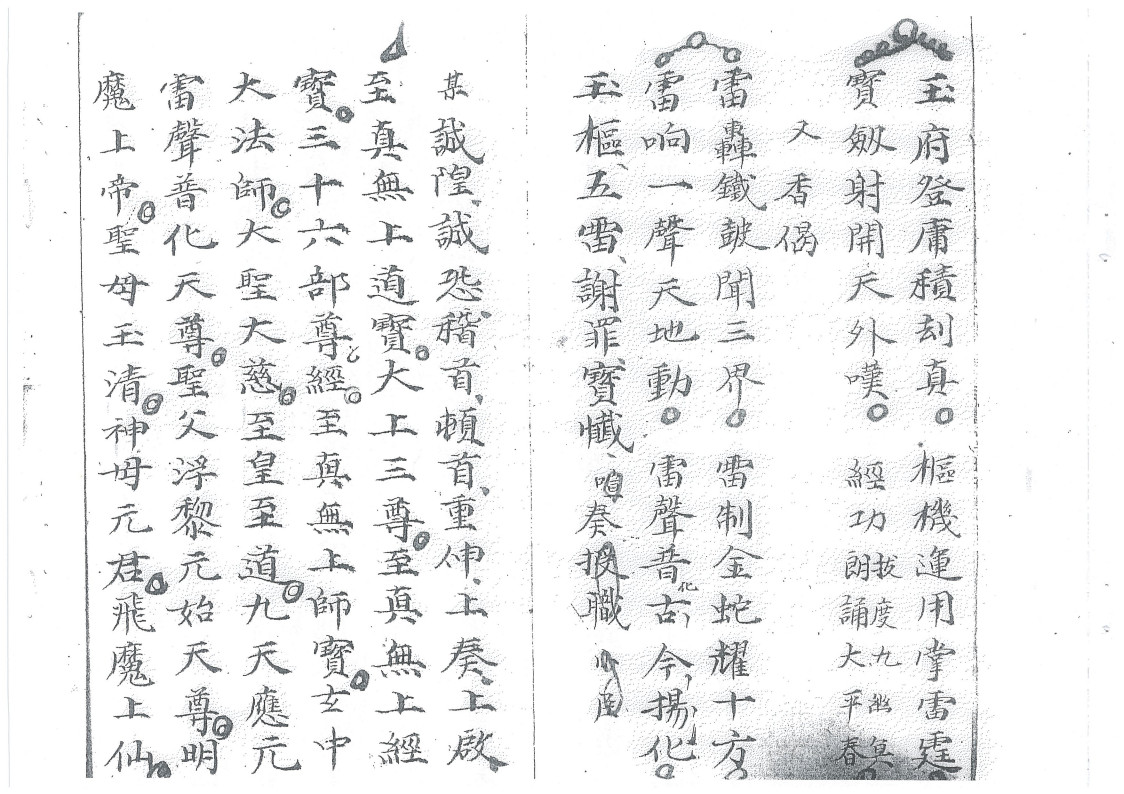 玉府登庸積刼真 樞機運用掌雷霆
寶劔射開天外嘆 經功拔度九幽冥朗誦大平春
又香偈
雷轟鐵皷聞三界 雷制金蛇耀十方
雷响一聲天地動 雷聲普化古今揚化
玉樞五雷謝罪寶懺 宣奏授職小臣
某誠隍誠恐稽首頓首重伸上奏上啟
至真無上道寶大上三尊至真無上經
寶三十六部尊經至真無上師寶玄中
大法師大聖大慈至皇至道九天應元
雷聲普化天尊聖父浮黎元始天尊明
魔上帝聖母玉清神母元君飛魔上仙